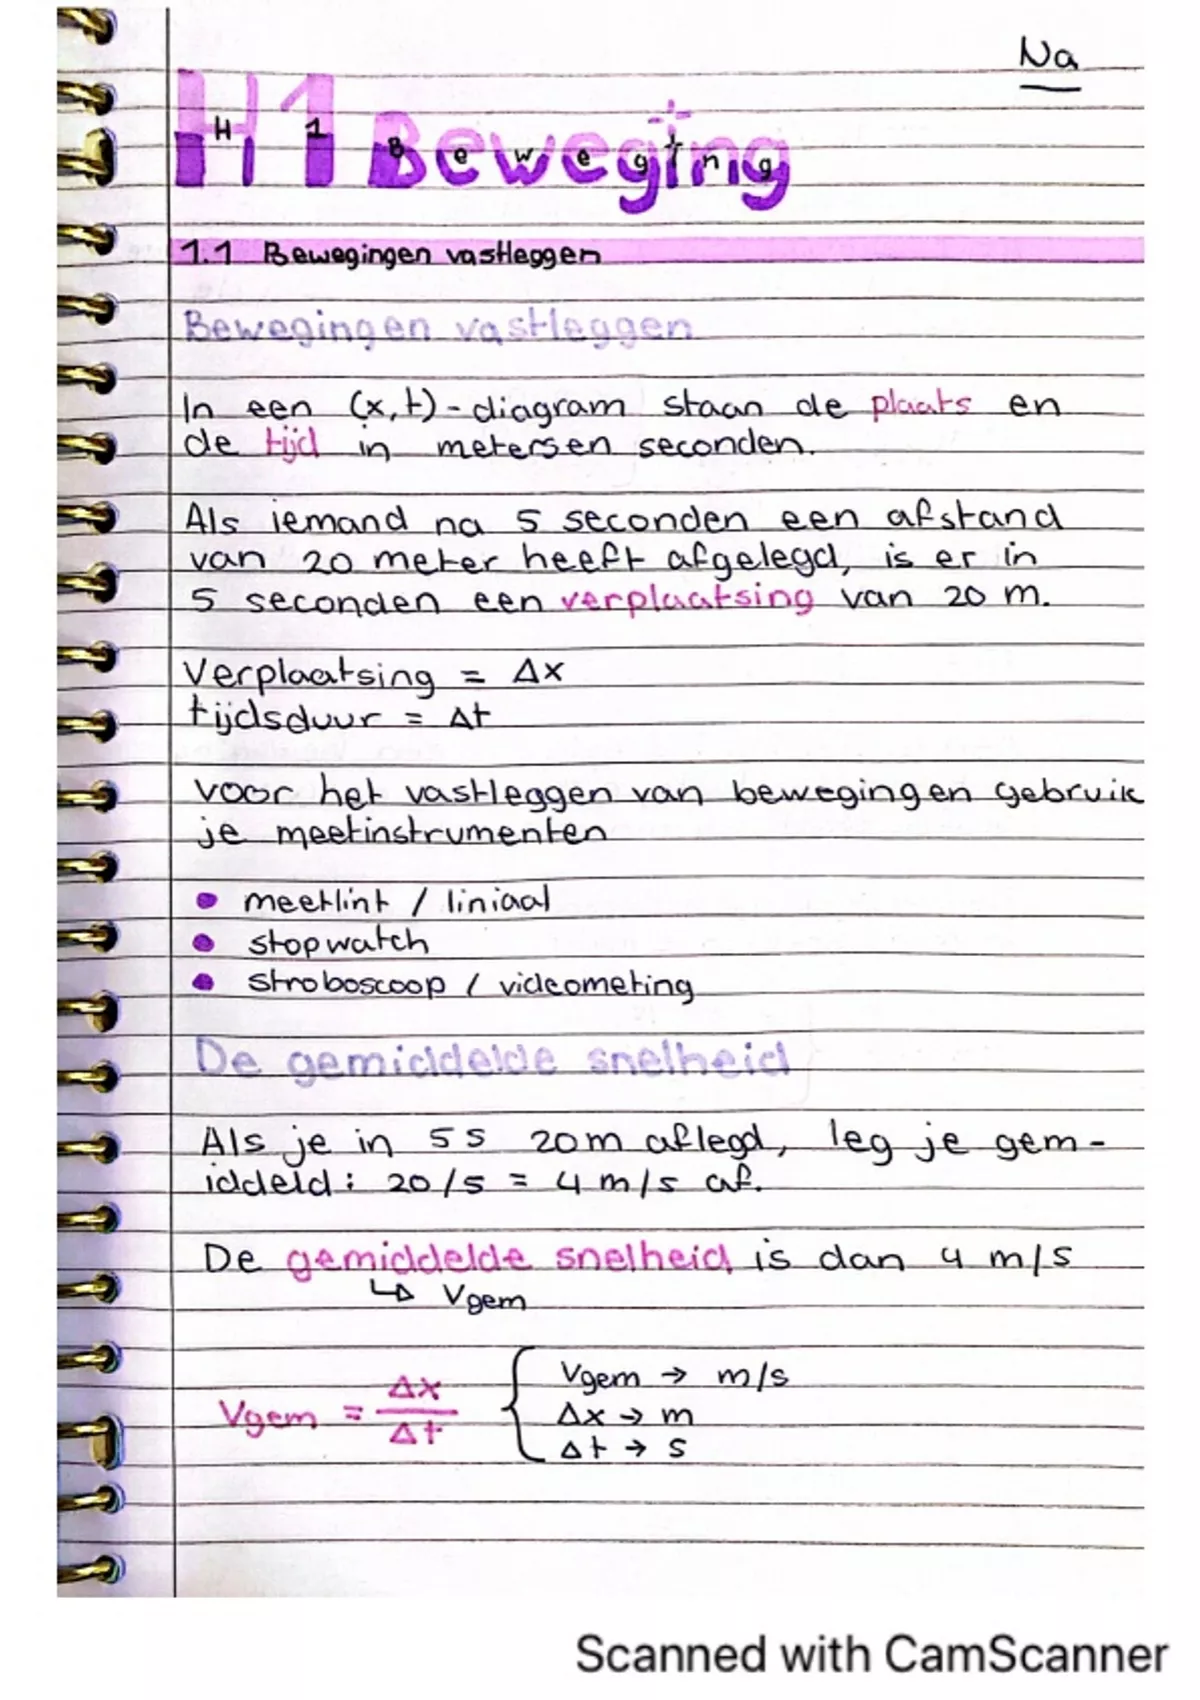 Na
H1 Beweging
1.1 Bewegingen vastleggen
Bewegingen vastleggen
In een (x,t)-diagram staan de plaats en
de tijd in meters en seconden.
Als iemand na 5 seconden een afstand
van 20 meter heeft afgelegd, is er in
5 seconden een verplaatsing van 20 m.
Verplaatsing = Δx
tijdsduur = Δt
voor het vastleggen van bewegingen gebruik
je meetinstrumenten
• meetlint / liniaal
• stopwatch
• stroboscoop / videometing
De gemiddelde snelheid
Als je in 5s 20m aflegd, leg je gem-
iddeld: 20/5 = 4 m/s af.
De gemiddelde snelheid is dan 4 m/s
↳ Vgem
Vgem = Δx / Δt { Vgem → m/s
Δx → m
Δt → s
Scanned with CamScanner